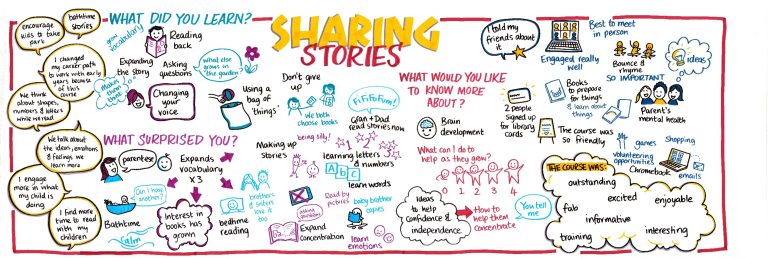 SHARING
STORIES
encourage
kids to take
part
bathtime
stories
I changed
my career path
to work with early
years because of
this course
We think
about shapes,
numbers & letters
while we read
We talk about
the ideas, emotions
& feelings we
learn more
I engage
more in what
my child is
doing
I find more
time to read
with my
children
WHAT DID YOU LEARN?
vocabulary
Reading
back
Expanding
the story
Asking
questions
What else
grows in
the garden?
Makes
them
think
Changing
your
voice
Using a
bag of
'things'
WHAT SURPRISED YOU?
parentese
Expands
vocabulary
x3
Can I have
another?
Bathtime
Calm
Interest in
books has
grown
brothers
& sisters
love it
too
bedtime
reading
Don't give
up
We both
choose books
Fi Fi Fo Fum!
Gran + Dad
read stories now
Making up
stories
being silly!
1 2 3
learning letters
& numbers
A b c
learn words
Read by
pictures
asking
questions
Expand
concentration
baby brother
copies
learn emotions
WHAT WOULD YOU LIKE
TO KNOW MORE
ABOUT?
Brain
development
What can I do to
help as they grow?
0 1 2 3 4
Ideas
to help
confidence &
independence
How to
help them
concentrate
You tell
me
I told my
friends about
it
Engaged really
well
Best to meet
in person
Bounce &
rhyme
ideas
SO IMPORTANT
2 people
signed up
for library
cards
Books
to prepare
for things
& learn about
things
Parent's
mental health
The course was
so friendly
games
Volunteering
opportunities
Shopping
Chromebook
emails
THE COURSE WAS:
outstanding
excited
enjoyable
fab
informative
training
interesting